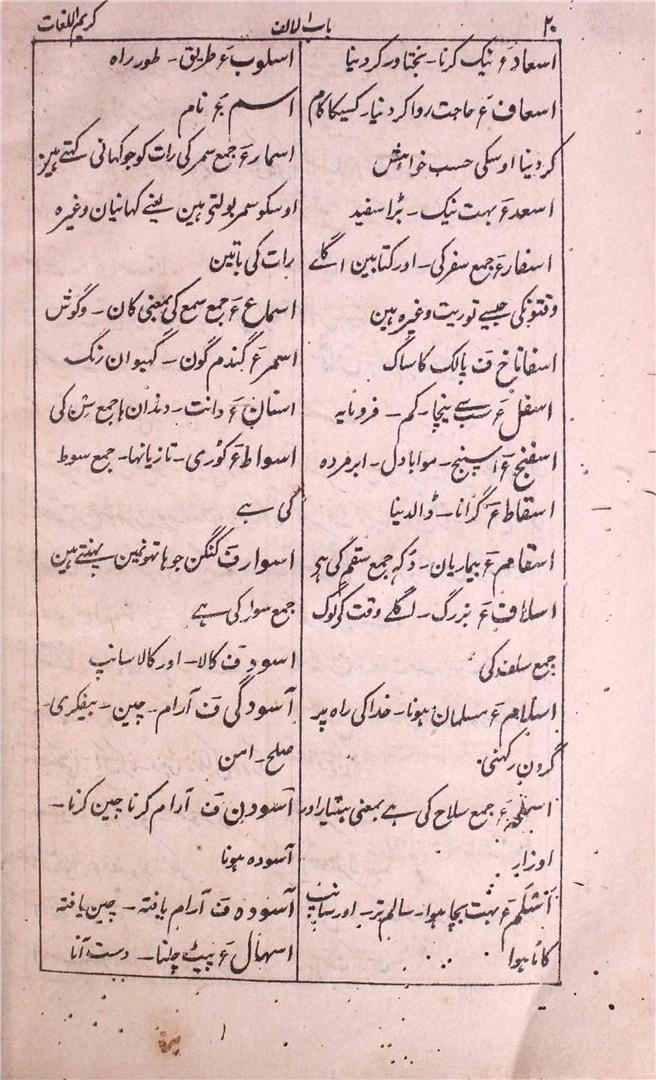 ۲۰
باب الالف
کریم اللغات
اسعاد ع نیک کرنا۔ بختاور کردینا
اسعاف ع حاجت روا کردینا۔ کسیکا کام
کردینا اوسکی حسب خواہش
اسعد ع بہت نیک۔ بڑا سفید
اسفار ع جمع سفر کی۔ اور کتابین اگلے
وقتونکی جیسے توریت وغیرہ ہین
اسفاناخ ف پالک کا ساگ
اسفل ع سب سے نیچا۔ کم۔ فرومایہ
اسفنج ع اسپنج۔ موابادل۔ ابر مردہ
اسقاط ع گرانا۔ ڈالدینا
اسقام ع بیماریان۔ دکہ جمع سقم کی ہے
اسلاف ع بزرگ۔ اگلے وقت کے لوگ
جمع سلف کی
اسلام ع مسلمان ہونا۔ خدا کی راہ پر
گردن رکہنی
اسلحہ ع جمع سلاح کی ہے بمعنی ہتیار اور
اوزار
ع بہت بچا ہوا۔ سالم تر۔ اور سانپ
کاٹا ہوا
اسلوب ع طریق۔ طور راہ
اسم ع نام
اسمار ع جمع سمر کی رات کو جو کہانی کہتے ہین
اوسکو سمر بولتی ہین یعنے کہانیان وغیرہ
رات کی باتین
اسماع ع جمع سمع کی بمعنی کان۔ وگوش
اسمر ع گندم گون۔ گیہوان رنگ
اسنان ع دانت۔ دندان ہا جمع سن کی
اسواط ع کوڑی۔ تازیانہا۔ جمع سوط
کی ہے
اسوار ف کنگن جو ہاتہونمین پہنتے ہین
جمع سوار کی ہے
اسود ف کالا۔ اور کالا سانپ
آسودگی ف آرام۔ چین۔ بیفکری۔
صلح۔ امن
آسودن ف آرام کرنا چین کرنا۔
آسودہ ہونا
آسودہ ف آرام یافتہ۔ چین یافتہ
اسہال ع پیٹ چلنا۔ دست آنا